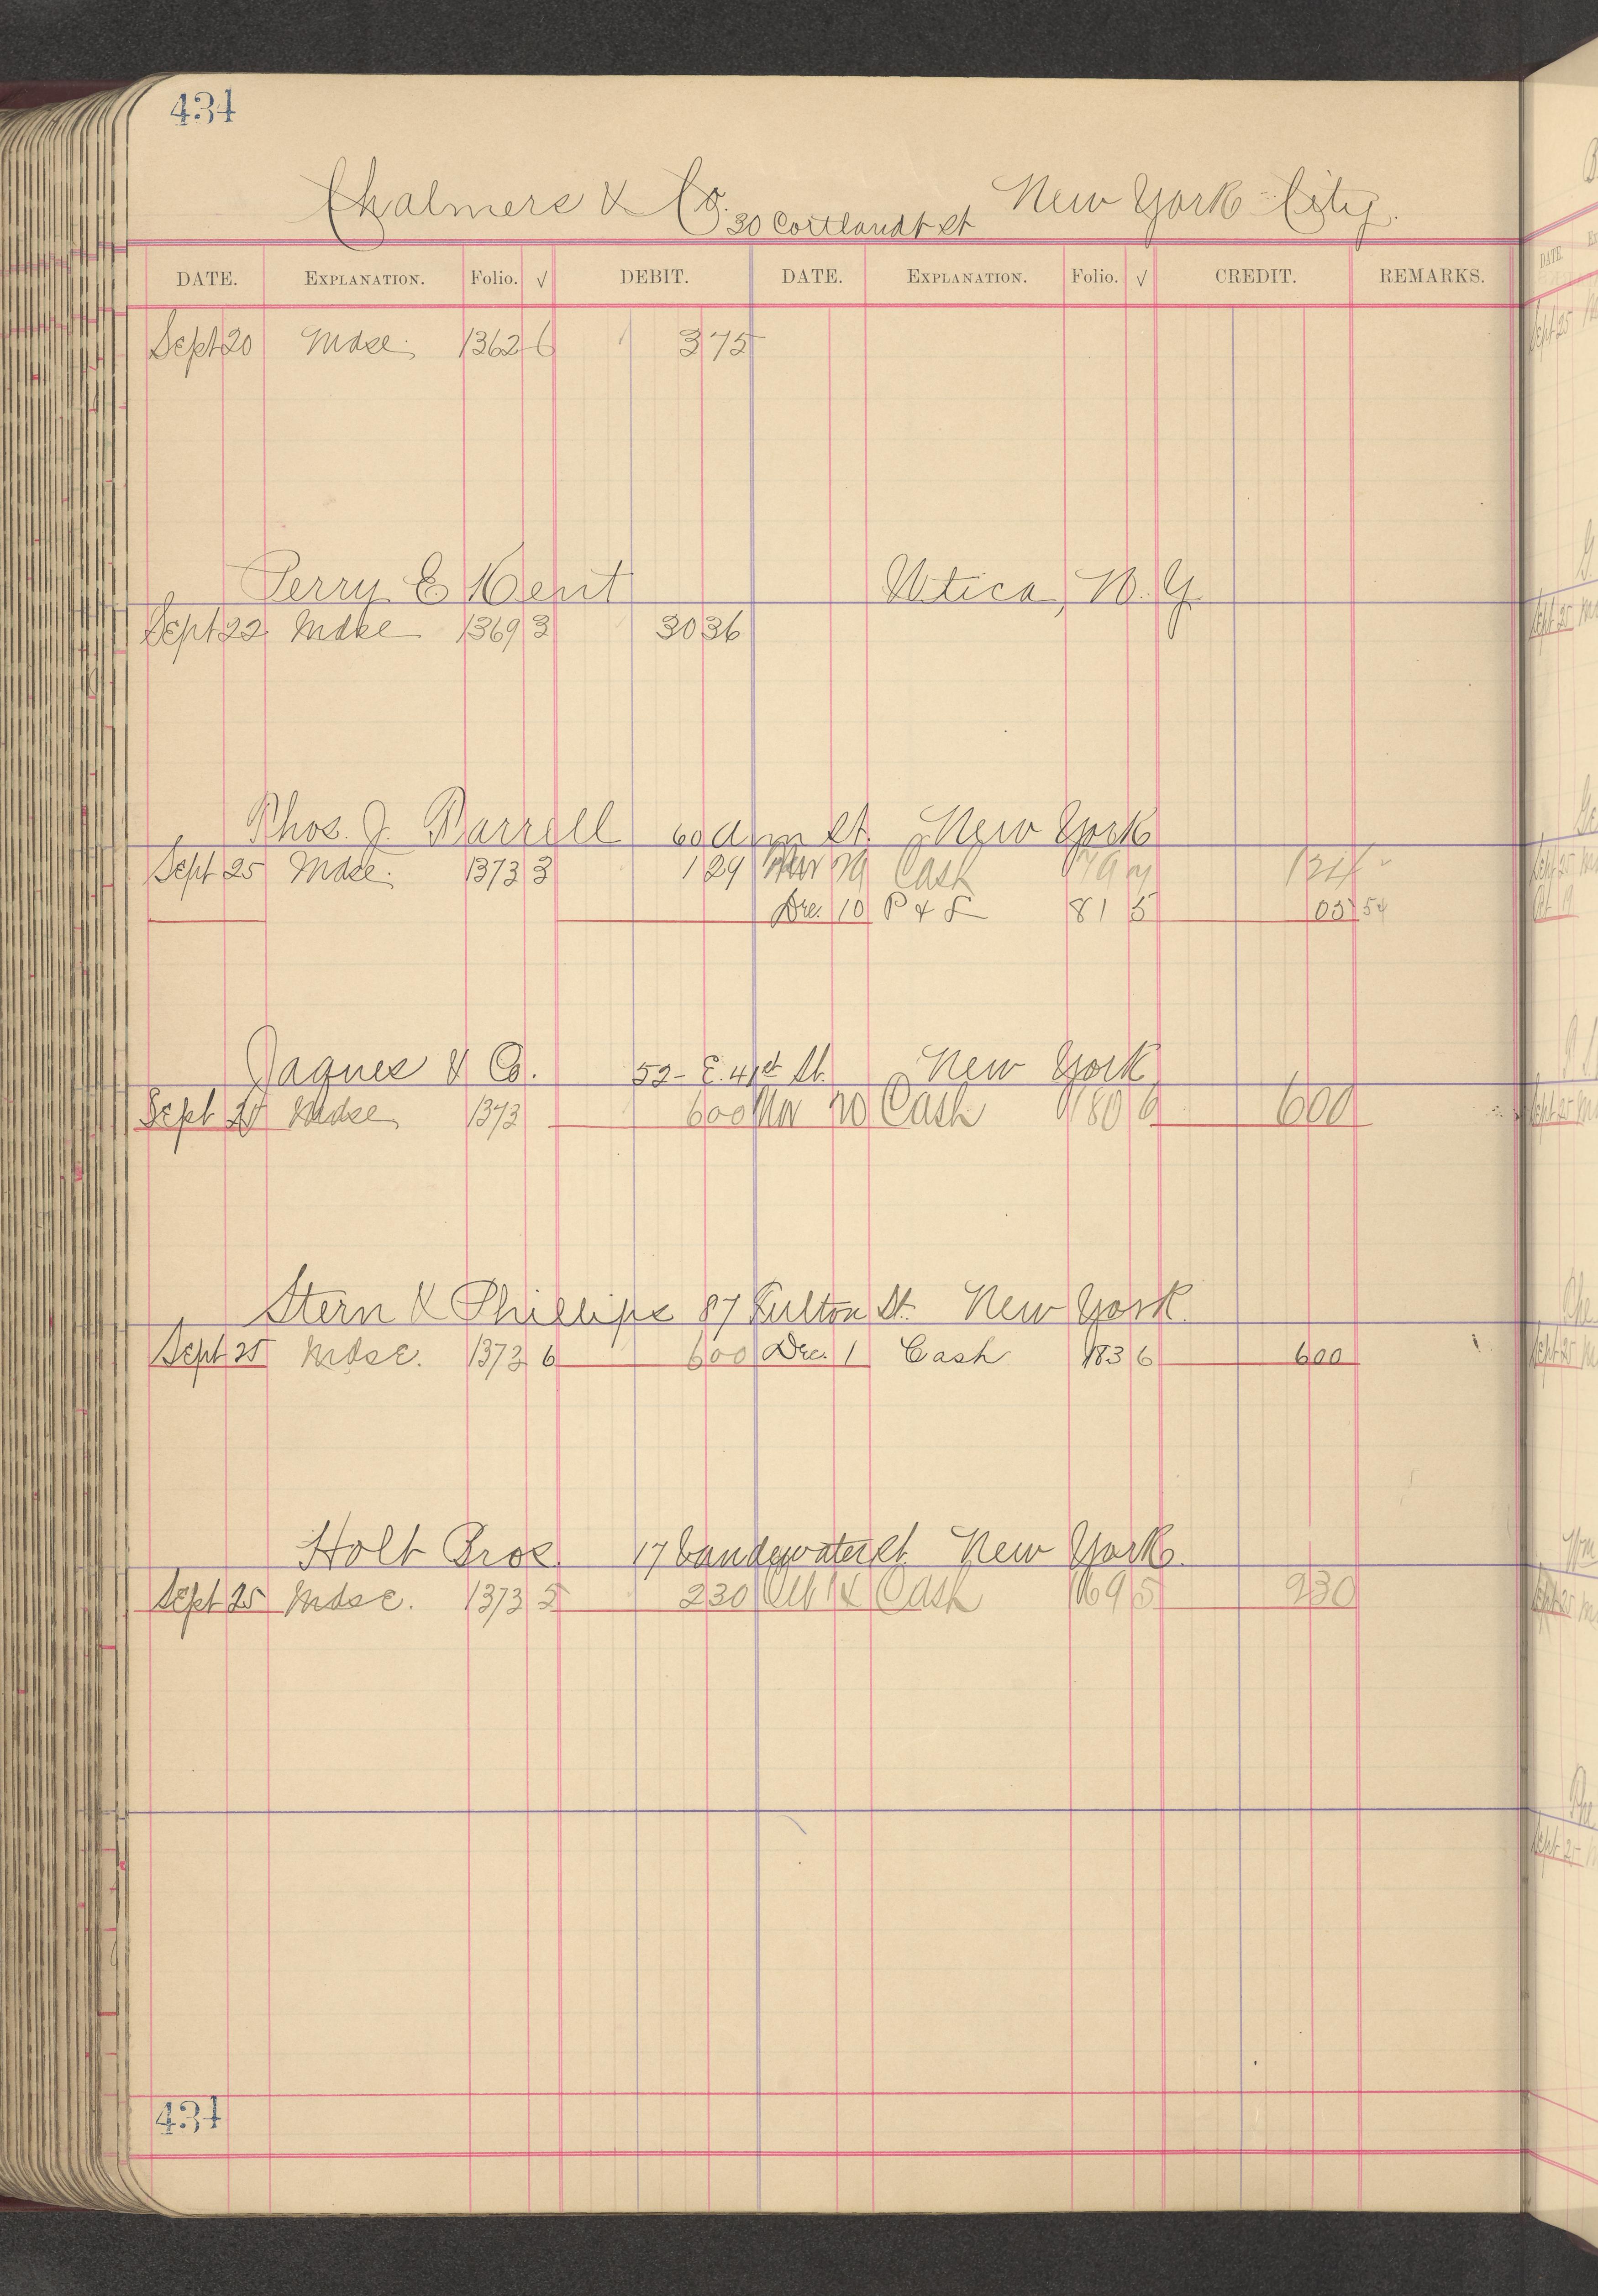 434
Chalmers & Co. 30 Cortlandt st New York City.
DATE. EXPLANATION. Folio. √ DEBIT. DATE. EXPLANATION. Folio. √ CREDIT. REMARKS.
Sept 20 Mdse. 1362 6 3 75
Perry E Kent Utica, N.Y.
Sept 22 Mdse 1369 3 30 36
Thos. J. Barrell 60 Ann St. New York
Sept 25 Mdse. 1373 3 1 29 Cash
Dec. 10 P & L 81 5 03 54
Jaques & Co. 52 E. 41st St. New York
Sept 25 Mdse 1373 6 00 Nov 20 Cash 180 6 6 00
Stern & Phillips 87 Fulton St. New York
Sept 25 Mdse. 1373 6 6 00 Dec. 1 Cash 183 6 6 00
Holt Bros 17 Vandewater St. New York
Sept 25 Mdse. 1373 5 2 30 Oct 14 Cash 169 5 2 30
434